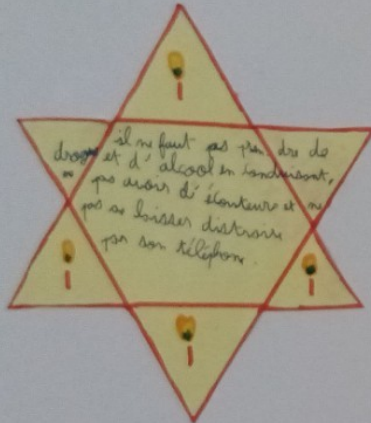 il ne faut pas prendre de
drogue et d'alcool en conduisant,
pas avoir d'écouteur et ne
pas se laisser distraire
par son téléphone.